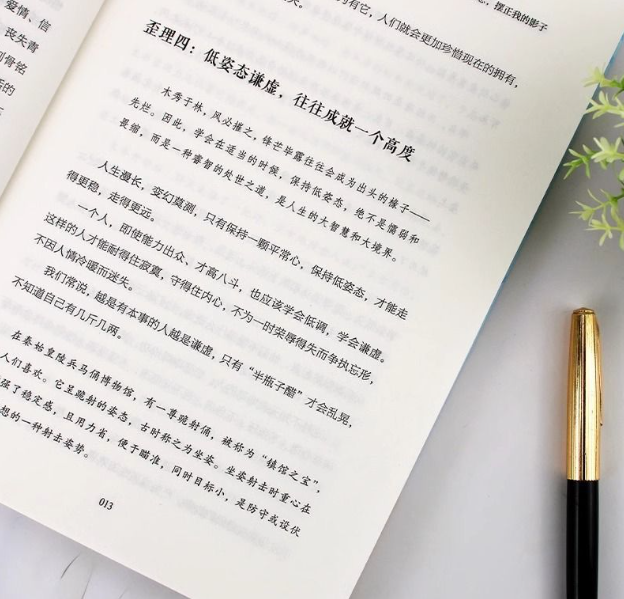 爱情、信
丧失青
刻骨铭
活的
摆正我的影子
有它，人们就会更加珍惜现在的拥有，
歪理四：低姿态谦虚，往往成就一个高度
木秀于林，风必摧之，锋芒毕露往往会成为出头的椽子——
先烂。因此，学会在适当的时候，保持低姿态，绝不是懦弱和
畏缩，而是一种睿智的处世之道，是人生的大智慧和大境界。
人生漫长，变幻莫测，只有保持一颗平常心，保持低姿态，才能走
得更稳，走得更远。
一个人，即使能力出众、才高八斗，也应该学会低调，学会谦虚。
这样的人才能耐得住寂寞，守得住内心，不为一时荣辱得失而争执忘形，
不因人情冷暖而迷失。
我们常说，越是有本事的人越是谦虚，只有“半瓶子醋”才会乱晃，
不知道自己有几斤几两。
在秦始皇陵兵马俑博物馆，有一尊跪射俑，被称为“镇馆之宝”，
人们喜欢。它呈跪射的姿态，古时称之为坐姿。坐姿射击时重心在
了稳定感，且用力省，便于瞄准，同时目标小，是防守或设伏
想的一种射击姿势。
013